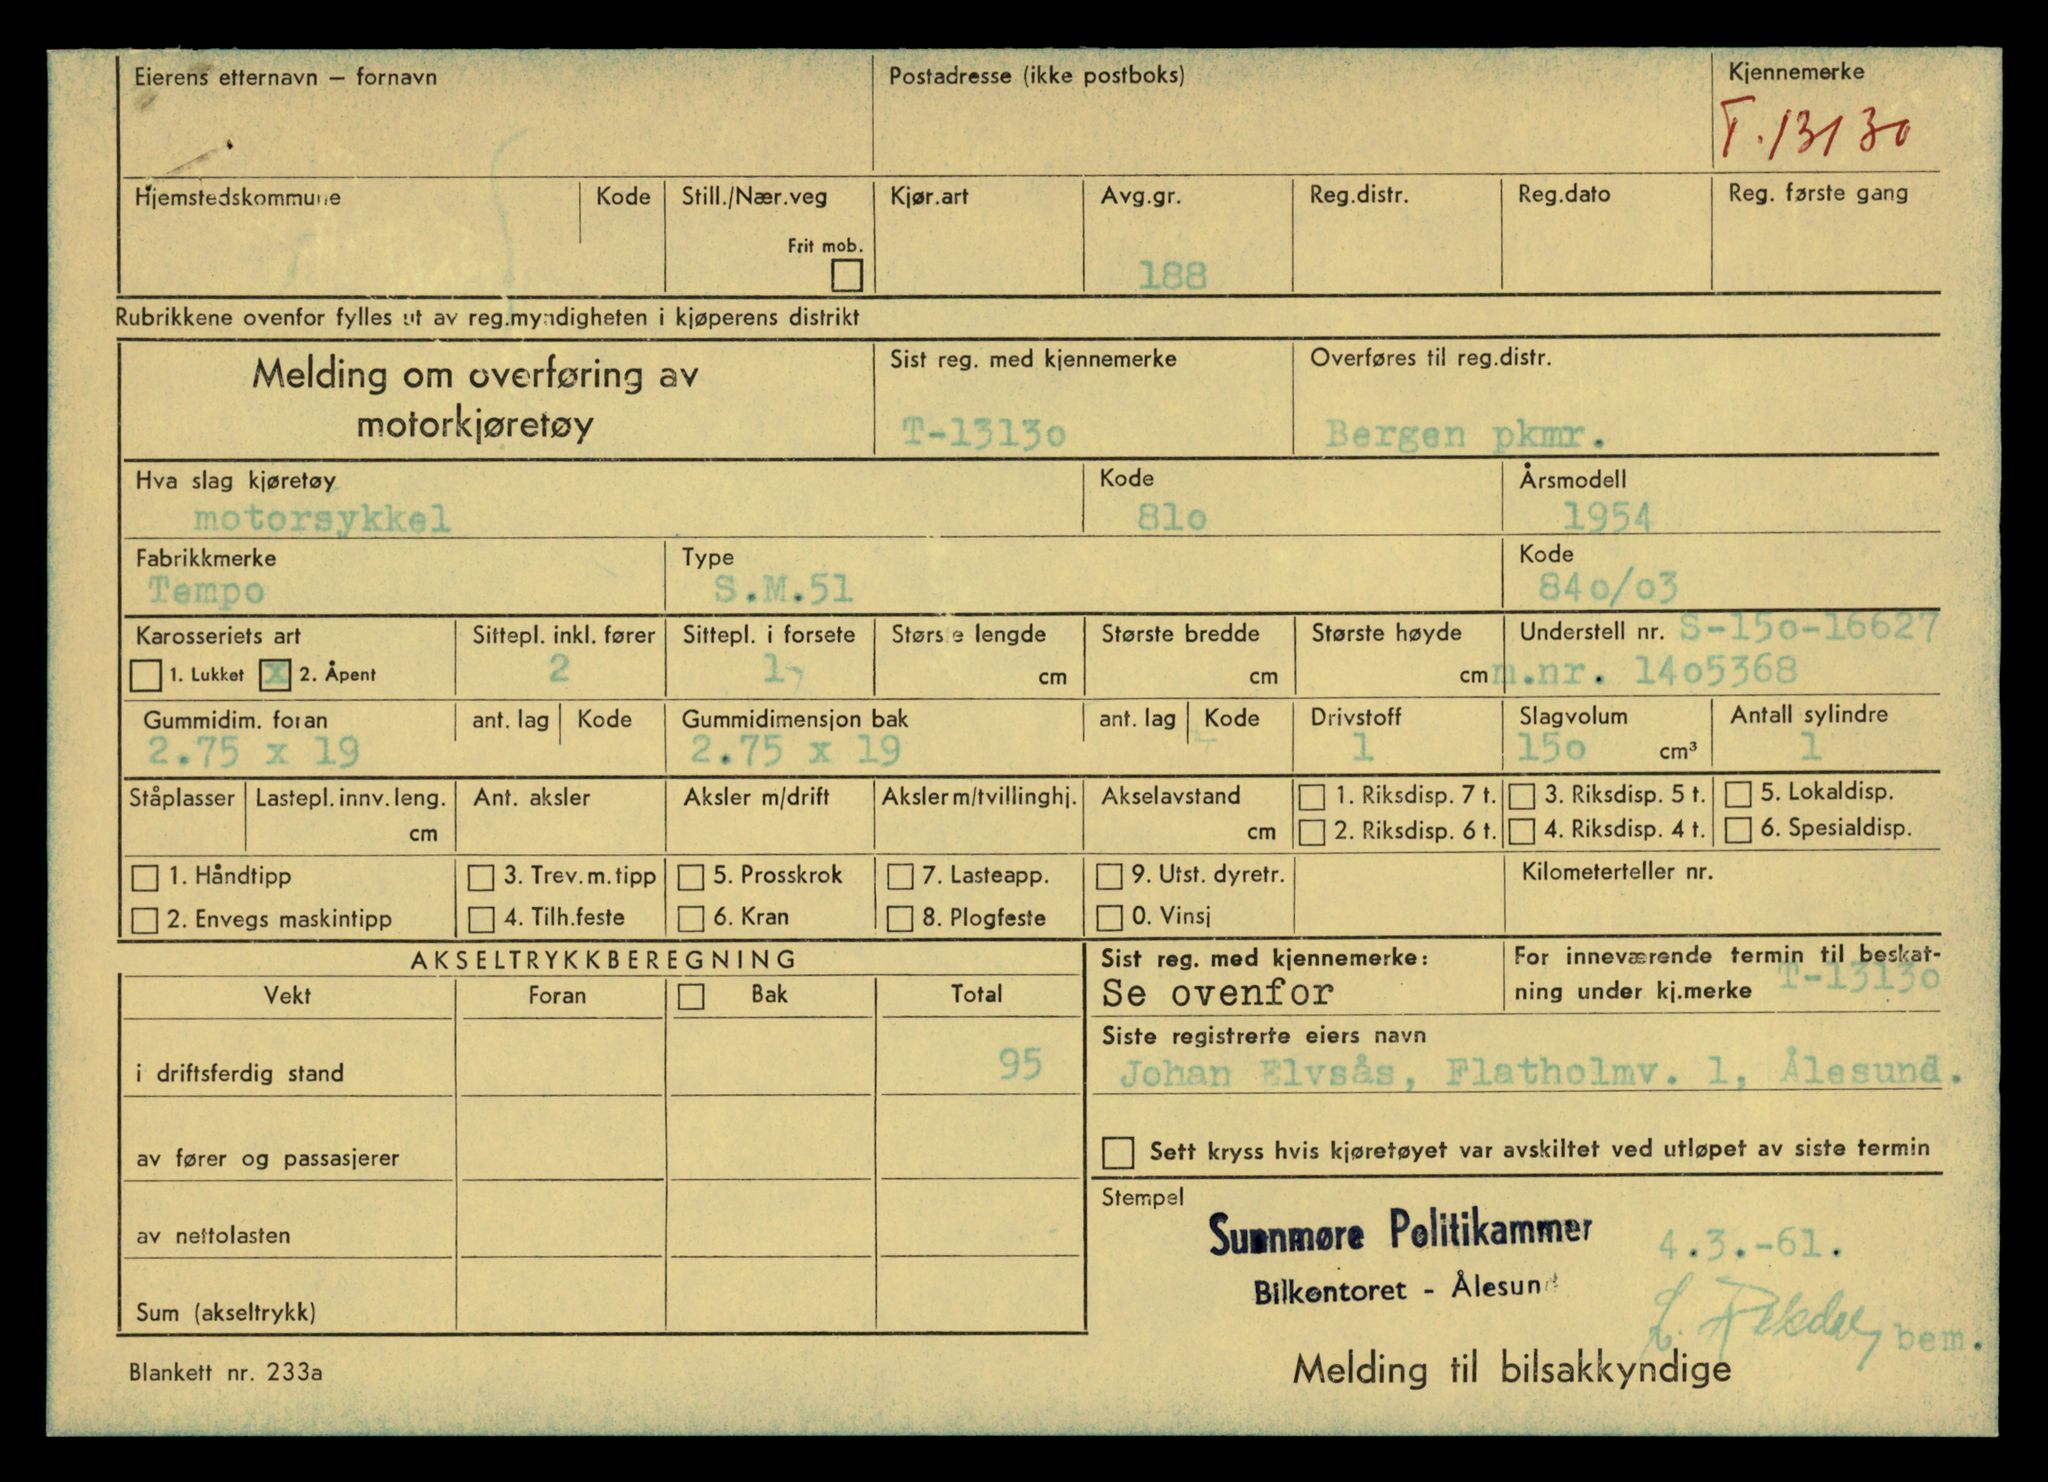 Eierens etternavn – fornavn Postadresse (ikke postboks) Kjennemerke
T.13130
Hjemstedskommune Kode Still./Nær.veg Kjør.art Avg.gr. Reg.distr. Reg.dato Reg. første gang
Frit mob.
188
Rubrikkene ovenfor fylles ut av reg.myndigheten i kjøperens distrikt
Melding om overføring av motorkjøretøy
Sist reg. med kjennemerke Overføres til reg.distr.
T-1313o Bergen pkmr.
Hva slag kjøretøy Kode Årsmodell
motorsykkel 81o 1954
Fabrikkmerke Type Kode
Tempo S.M.51 84o/o3
Karosseriets art Sittepl. inkl. fører Sittepl. i forsete Største lengde Største bredde Største høyde Understell nr. S-15o-16627
1. Lukket x 2. Åpent 2 1 cm cm cm m.nr. 14o5368
Gummidim. foran ant. lag Kode Gummidimensjon bak ant. lag Kode Drivstoff Slagvolum Antall sylindre
2.75 x 19 2.75 x 19 1 15o cm³ 1
Ståplasser Lastepl. innv. leng. Ant. aksler Aksler m/drift Aksler m/tvillinghj. Akselavstand 1. Riksdisp. 7 t. 3. Riksdisp. 5 t. 5. Lokaldisp.
cm cm 2. Riksdisp. 6 t. 4. Riksdisp. 4 t. 6. Spesialdisp.
1. Håndtipp 3. Trev.m.tipp 5. Prosskrok 7. Lasteapp. 9. Utst. dyretr. Kilometerteller nr.
2. Envegs maskintipp 4. Tilh.feste 6. Kran 8. Plogfeste 0. Vinsj
AKSELTRYKKBEREGNING Sist reg. med kjennemerke: For inneværende termin til beskat-
Vekt Foran Bak Total Se ovenfor ning under kj.merke T-1313o
Siste registrerte eiers navn
i driftsferdig stand 95 Johan Elvsås, Flatholmv. 1, Ålesund.
av fører og passasjerer Sett kryss hvis kjøretøyet var avskiltet ved utløpet av siste termin
Stempel
av nettolasten Sunnmøre Politikammer 4.3.-61.
Bilkontoret - Ålesund
Sum (akseltrykk)
bem.
Blankett nr. 233a Melding til bilsakkyndige